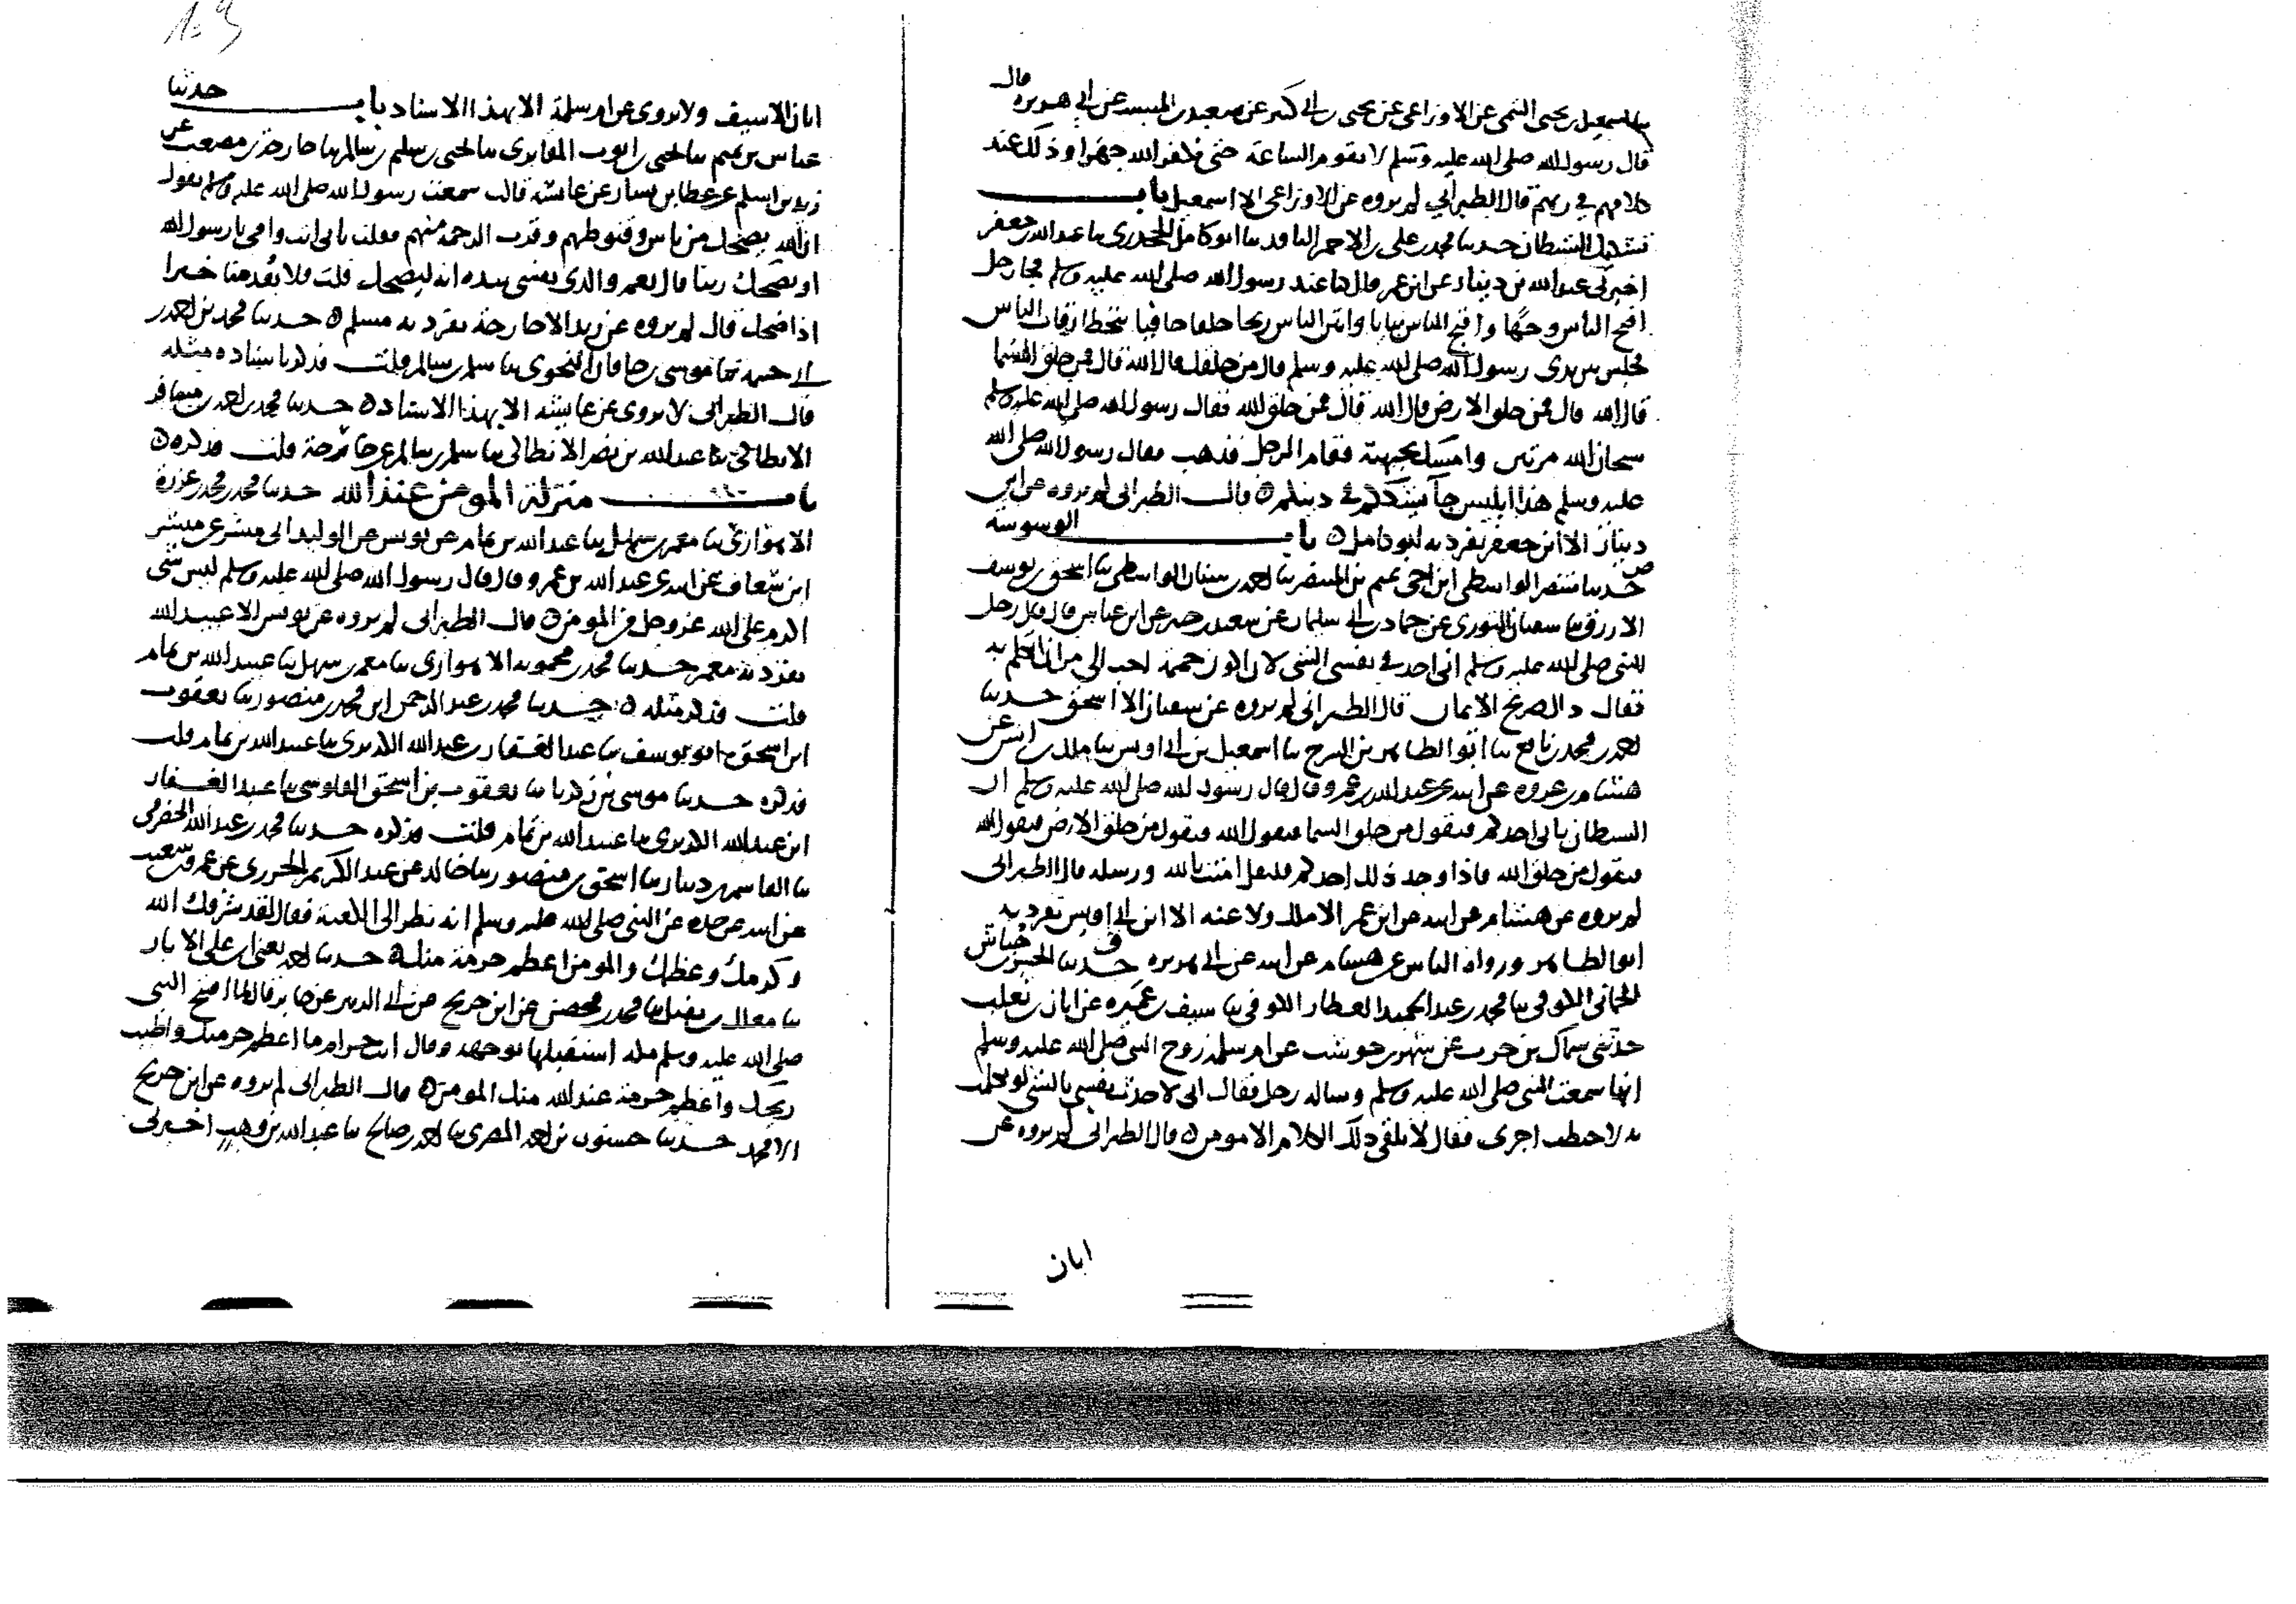 ثنا اسمعيل بن يحيى التيمي عن الاوزاعي عن يحيى بن ابي كثير عن سعيد بن المسيب عن ابي هريرة قال
قال رسول الله صلى الله عليه وسلم لا تقوم الساعة حتى يكفر بالله جهرا وذلك عند
كلامهم في ربهم قال الطبراني لم يروه عن الاوزاعي الا اسمعيل باب
تشكيك الشيطان حدثنا محمد بن علي بن الاحمر الناقد ثنا ابو كامل الجحدري ثنا عبد الله بن جعفر
اخبرني عبد الله بن دينار عن ابن عمر قال كنا عند رسول الله صلى الله عليه وسلم فجا رجل
اقبح الناس وجها واقبح الناس ثيابا وانتن الناس ريحا جلفا جافيا يتخطا رقاب الناس
فجلس بين يدي رسول الله صلى الله عليه وسلم قال من خلقك قال الله قال فمن خلق السما
قال الله قال فمن خلق الارض قال الله قال فمن خلق الله فقال رسول الله صلى الله عليه وسلم
سبحان الله مرتين وامسك بجبهته فقام الرجل فذهب فقال رسول الله صلى الله
عليه وسلم هذا ابليس جا يشككم في دينكم ه قال الطبراني لم يروه عن ابن
دينار الا ابن جعفر تفرد به ابو كامل ه باب الوسوسة
حدثنا منتصر الواسطي ابن اخي تميم بن المنتصر ثنا احمد بن سنان الواسطي ثنا اسحق بن يوسف
الازرق ثنا سفيان الثوري عن حماد بن ابي سليمان عن سعيد بن جبير عن ابن عباس قال قال رجل
للنبي صلى الله عليه وسلم اني احدث نفسي الشي لان اكون حممة احب الي من ان اتكلم به
فقال ذاك صريح الايمان قال الطبراني لم يروه عن سفيان الا اسحق حدثنا
احمد بن محمد بن نافع ثنا ابو الطاهر بن السرح ثنا اسمعيل بن ابي اويس ثنا ملك بن انس عن
هشام بن عروة عن ابيه عن عبد الله بن عمرو قال قال رسول الله صلى الله عليه وسلم ان
الشيطان ياتي احدكم فيقول من خلق السما فيقول الله فيقول من خلق الارض فيقول الله
فيقول من خلق الله فاذا وجد ذلك احدكم فليقل امنت بالله ورسله قال الطبراني
لم يروه عن هشام عن ابيه عن ابن عمر الا ملك ولا عنه الا ابن ابي اويس تفرد به
ابو الطاهر ورواه الناس عن هشام عن ابيه عن ابي هريرة حدثنا الحسين
الحماني الكوفي ثنا محمد بن عبد الحميد العطار الكوفي ثنا سيف بن عميرة عن ابان بن تغلب
حدثني سماك بن حرب عن شهر بن حوشب عن ام سلمة زوج النبي صلى الله عليه وسلم
انها سمعت النبي صلى الله عليه وسلم وساله رجل فقال اني لاحدث نفسي بالشي لو تكلمت
به لاحبطت اجري فقال لا يلقى ذلك الكلام الا مومن ه قال الطبراني لم يروه عن
ابان
ابان الا سيف ولا يروى عن ام سلمة الا بهذا الاسناد باب حدثنا
عباس بن تميم ثنا يحيى بن ايوب المقابري ثنا يحيى بن سلم بن سالم ثنا خارجة بن مصعب عن
زيد بن اسلم عن عطا بن يسار عن عائشة قالت سمعت رسول الله صلى الله عليه وسلم يقول
ان الله يضحك من ياس وقنوطهم وقرب الرحمة منهم فقلت بابي انت وامي يا رسول الله
او يضحك ربنا قال نعم والذي نفسي بيده انه ليضحك قلت فلا يعدمنا خيرا
اذا ضحك قال لم يروه عن زيد الا خارجة تفرد به مسلم ه حدثنا محمد بن احمد بن
ابي خيثمة ثنا موسى بن خاقان النحوي ثنا سلم بن سالم قلت فذكر باسناده مثله
قال الطبراني لا يروى عن عايشة الا بهذا الاسناد ه حدثنا محمد بن احمد بن مسافر
الانطاكي ثنا عبد الله بن نصر الانطاكي ثنا سلم بن سالم عن خارجة قلت فذكره ه
باب منزلة المومن عند الله حدثنا محمد بن محمد بن عزرة
الاهوازي ثنا معمر بن سهل ثنا عبيد الله بن تمام عن يونس عن الوليد ابي بشر عن بشر
ابن شغاف عن ابيه عن عبد الله بن عمرو قال قال رسول الله صلى الله عليه وسلم ليس شي
اكرم على الله عز وجل من المومن ه قال الطبراني لم يروه عن يونس الا عبيد الله
تفرد به معمر حدثنا محمد بن محمويه الاهوازي ثنا معمر بن سهل ثنا عبيد الله بن تمام
قلت فذكر مثله ه حدثنا محمد بن عبد الرحمن ابن محمد بن منصور ثنا يعقوب
ابن اسحق ابو يوسف ثنا عبد الغفار بن عبيد الله الكريزي ثنا عبيد الله بن تمام قلت
فذكره حدثنا موسى بن زكريا ثنا يعقوب بن اسحق القلوسي ثنا عبد الغفار
ابن عبيد الله الكريزي ثنا عبيد الله بن تمام قلت فذكره حدثنا محمد بن عبد الله الحضرمي
ثنا القاسم بن دينار ثنا اسحق بن منصور ثنا خالد عن عبد الكريم الجزري عن عمرو بن شعيب
عن ابيه عن جده عن النبي صلى الله عليه وسلم انه نظر الى الكعبة فقال لقد شرفك الله
وكرمك وعظمك والمومن اعظم حرمة منك ه حدثنا احمد بن علي الابار
ثنا معلل بن نفيل ثنا محمد بن محصن عن ابن جريج عن ابي الزبير عن جابر قال لما افتتح النبي
صلى الله عليه وسلم مكة استقبلها بوجهه وقال انت حرام ما اعظم حرمتك واطيب
ريحك واعظم حرمة عند الله منك المومن ه قال الطبراني لم يروه عن ابن جريج
الا محمد حدثنا حسنون بن احمد المصري ثنا احمد بن صالح ثنا عبد الله بن وهب اخبرني